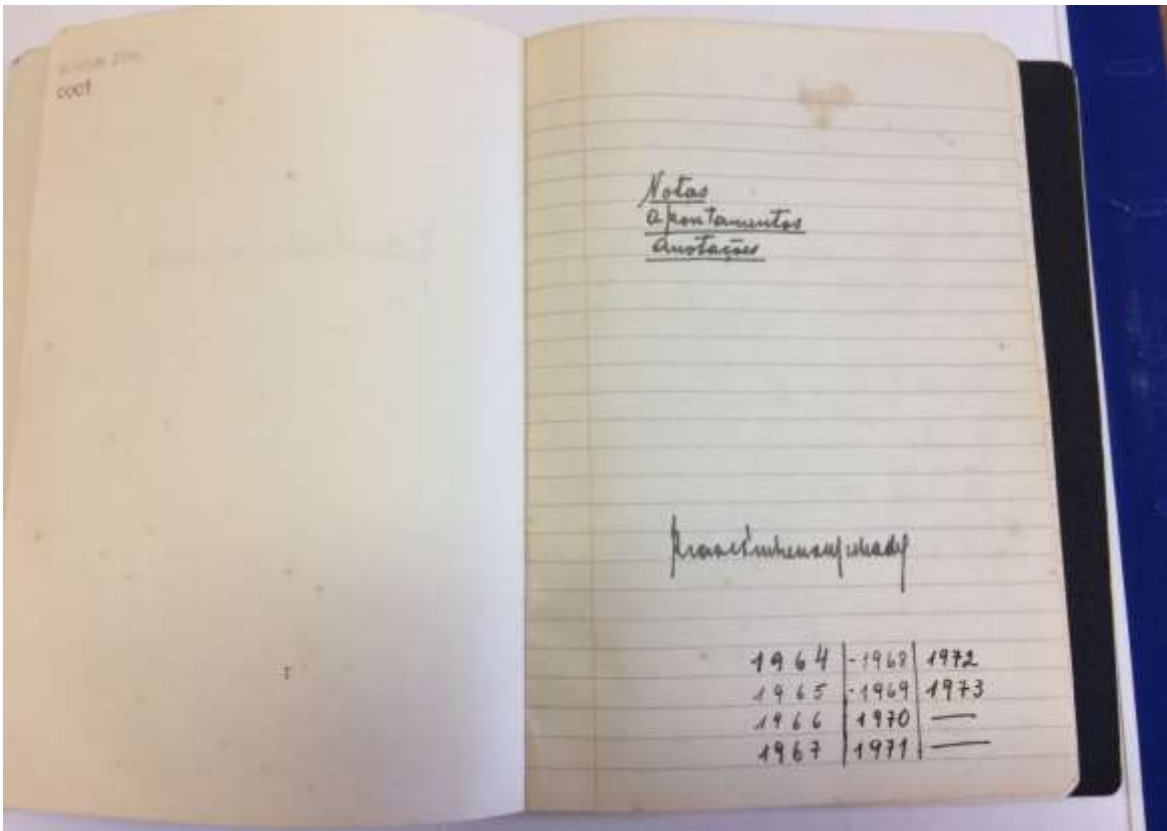 0001
Notas
Apontamentos
Anotações
1964 | -1968 | 1972
1965 | -1969 | 1973
1966 | 1970 | —
1967 | 1971 | —